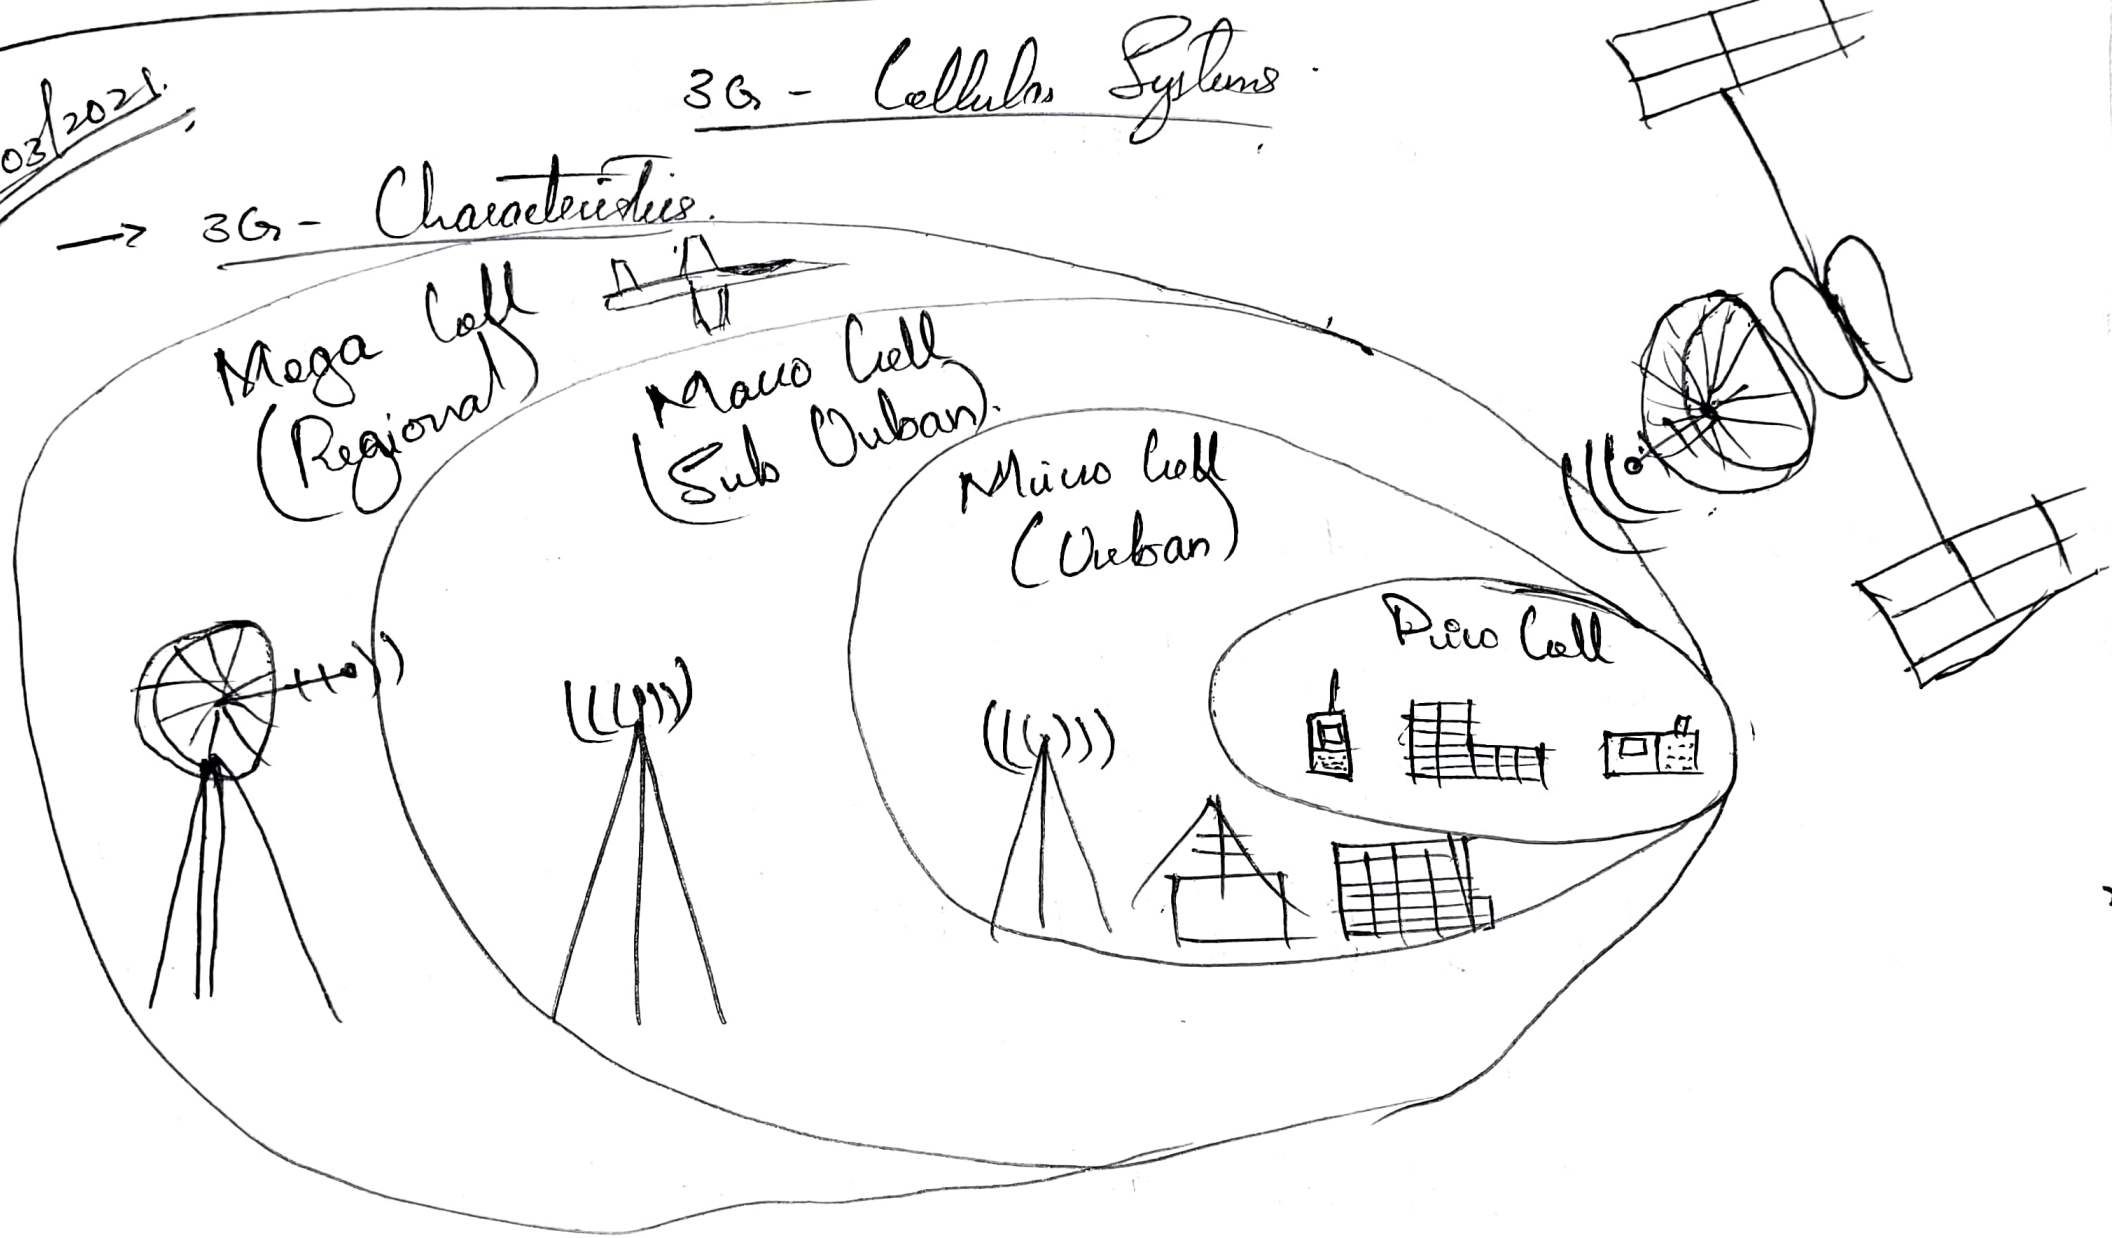 03/2021.
3G - Cellular Systems.
→ 3G - Characteristics.
Mega Cell
(Regional)
Macro Cell
(Sub Urban).
Micro Cell
(Urban)
Pico Cell